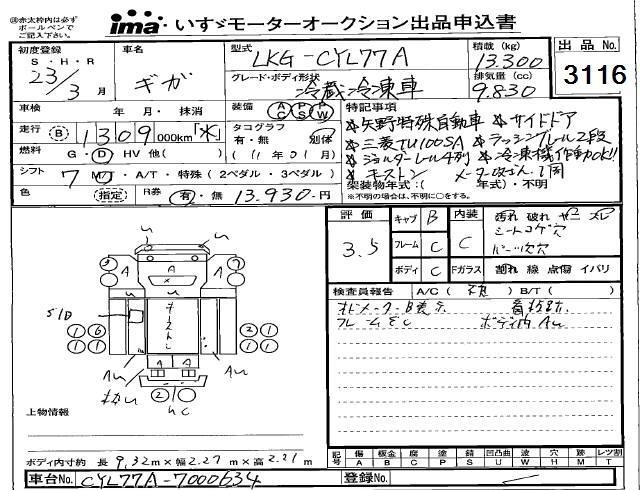 ※赤太枠内は必ず
ボールペンで
ご記入下さい。
ima いすゞモーターオークション出品申込書
初度登録 S・H・R 23/3 月
車名 ギガ
型式 LKG-CYL77A
グレード・ボディ形状 冷蔵冷凍車
積載(kg) 13,300
排気量(cc) 9,830
出品No. 3116
車検 年 月・抹消
装備 AC PS PW
特記事項
走行 B 1309000km「水」
タコグラフ 有・無 別体
燃料 G・D・HV 他( )
(11年01月)
シフト 7 MT・A/T・特殊(2ペダル・3ペダル)
色 指定
R券 有・無 13,930円
★矢野特殊自動車 ★サイドドア
★三菱TU100SA ★ラッシングレール2段
★ジョルダーレール4列 ★冷凍機作動OK!!
★キーストン
架装物年式:( 年式)・不明
※不明の場合は、不明に○をする。
評価 3.5
キャブ B
フレーム C
ボディ C
内装 C
Fガラス
汚れ 破れ ヤニ スレ
シートコゲ穴
パーツ欠穴
割れ 線 点傷 イバリ
検査員報告 A/C( ) B/T( )
オドメーターB表示 看板跡
フレームSC ボディ内AU
S/D
キーストン
上物情報
ボディ内寸約 長 9,32m×幅 2.27m×高 2.21m
記号 傷A 板金B 腐C 塗P 錆S 凹凸曲U 波W 穴H 跡M レツ割T
車台No. CYL77A-7000634
登録No.